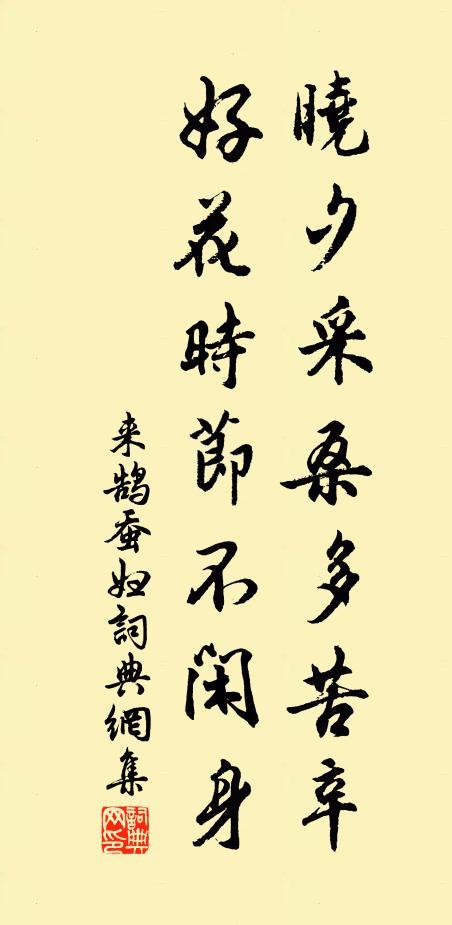 曉夕采桑多苦辛
好花時節不閑身
来鹄蚕妇詞典網集
詞典网印